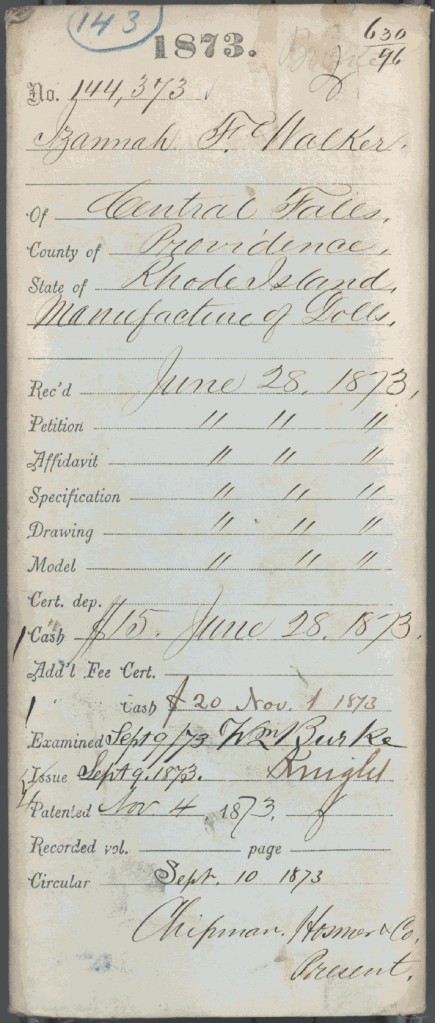 143
1873.
630
96
No. 144,373
Izannah F. Walker.
Of Central Falls,
County of Providence,
State of Rhode Island,
Manufacture of Dolls,
Rec'd June 28, 1873,
Petition " " "
Affidavit " " "
Specification " " "
Drawing " " "
Model " " "
Cert. dep.
1 Cash $15. June 28, 1873,
Add'l Fee Cert.
1 " Cash $20 Nov. 1 1873
Examined Sept 9/73 Wm Burke
Issue Sept 9. 1873. Knight
Patented Nov 4, 1873.
Recorded vol. page
Circular Sept. 10 1873
Chipman, Hosmer & Co,
Present.